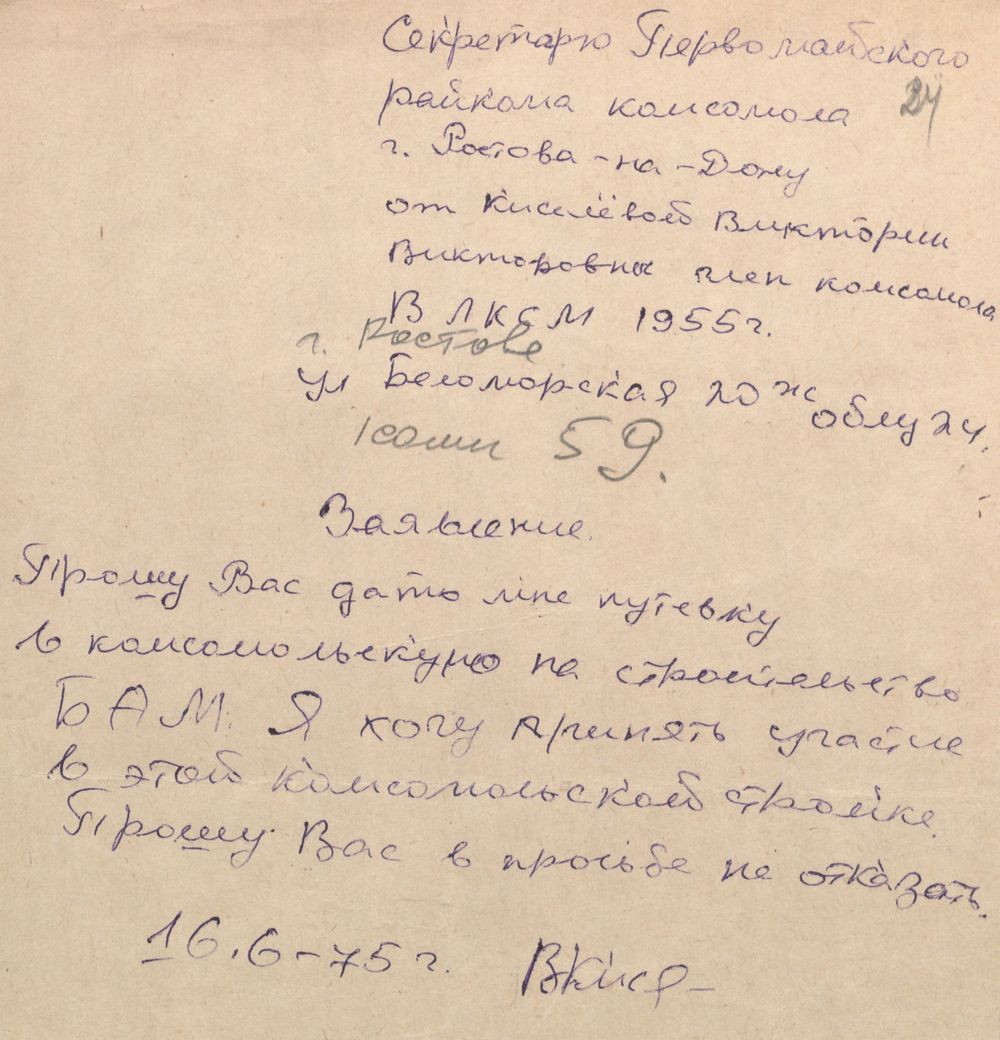 Секретарю Первомайского
райкома комсомола
24
г. Ростова-на-Дону
от Киселёвой Виктории
Викторовны член комсомола
ВЛКСМ 1955г.
г. Ростове
ул Беломорская 20 ж
облуч 24.
комн 59.
Заявление.
Прошу Вас дать мне путевку
в комсомольскую на строительство
БАМ. Я хочу принять участие
в этой комсомольской стройке.
Прошу Вас в просьбе не отказать.
16.6-75 г.